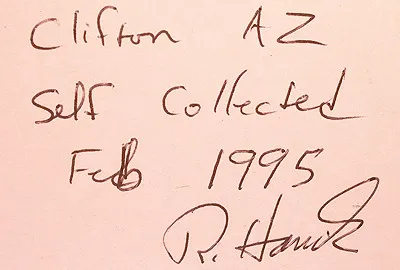 Clifton AZ
Self Collected
Feb 1995
R.